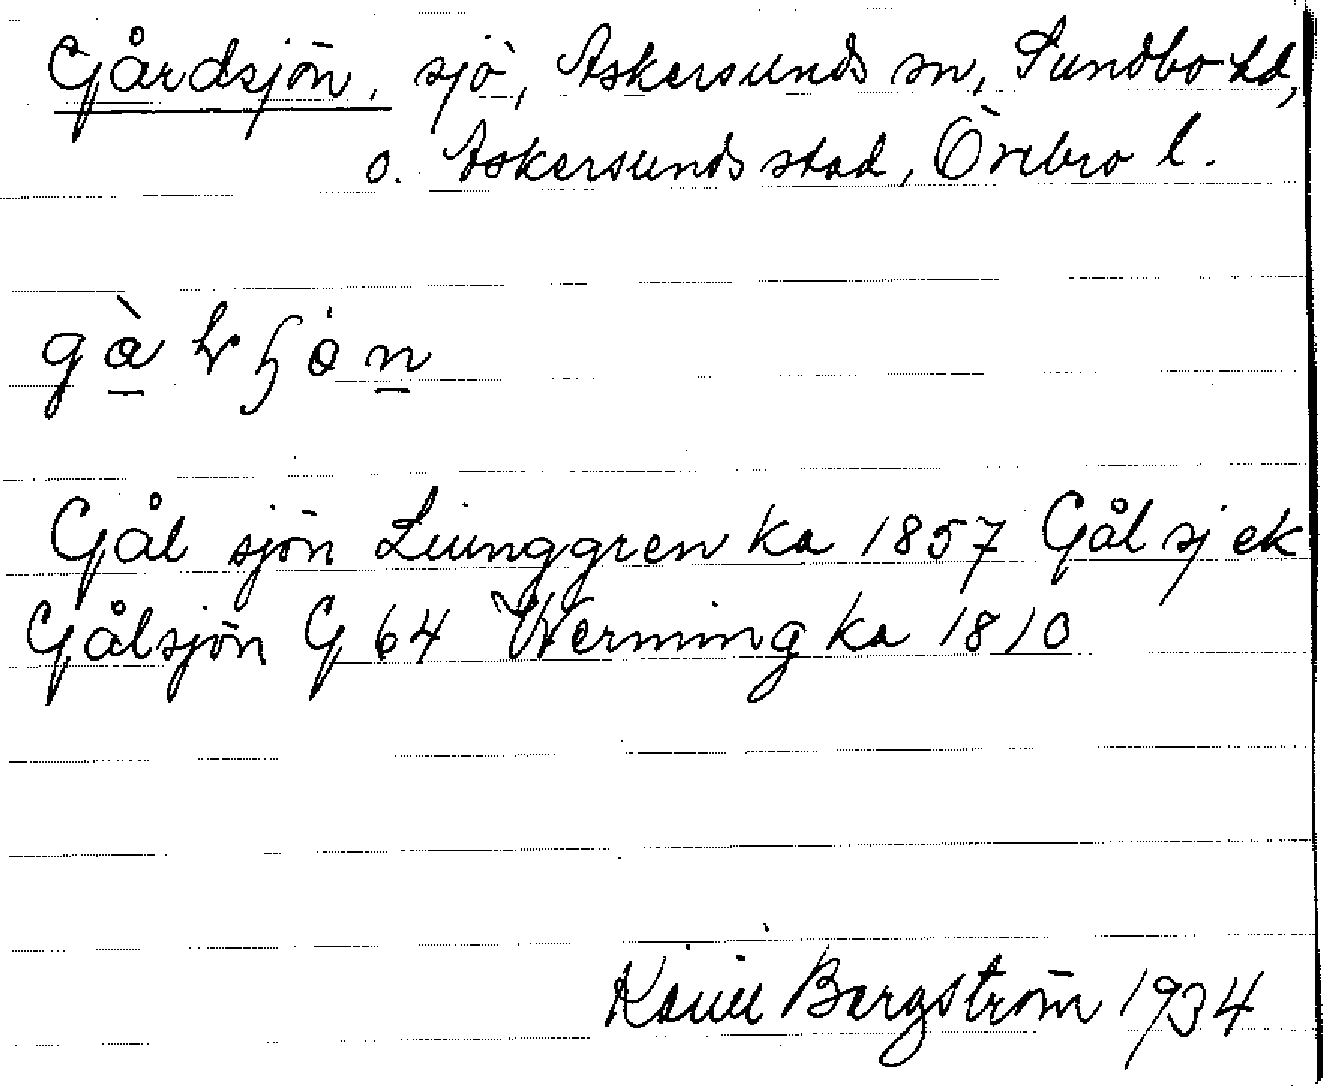 Gårdsjön, sjö, Askersunds sn, Sundbo hd,
o. Askersunds stad, Örebro l.
Gål sjön Liunggren ka 1857 Gål sj ek
Gålsjön G 64 Werming ka 1810
Bergström 1934